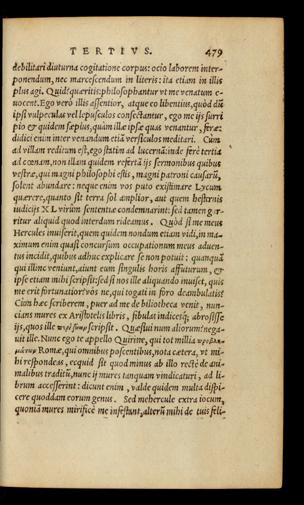 TERTIVS. 479
debilitari diuturna cogitatione corpus: ocio laborem inter-
ponendum, nec marcescendum in literis: ita etiam in illis
plus agi. Quid quæritis: philosophantur vt me venatum e-
uocent. Ego verò illis assentior, atque eo libentius, quòd dũ
ipsi vulpeculas vel lepusculos consectantur, ego me ijs surri
pio & quidem sæpius, quàm illæ ipsæ quas venantur, feræ:
didici enim inter venandum etiã versiculos meditari. Cùm
ad villam reditum est, ego statim ad lucernã: inde ferè tertia
ad cœnam, non illam quidem refertã ijs sermonibus quibus
vestræ, qui magni philosophi estis, magni patroni causarũ,
solent abundare: neque enim vos puto existimare Lycum
quærere, quanto sit terra sol amplior, aut quem hesternis
iudicijs XL virûm sententiæ condemnarint: sed tamen ga-
rritur aliquid quod interdam rideamus. Quòd si me meus
Hercules inuiserit, quem quidem nondum etiam vidi, in ma-
ximum enim quasi concursum occupationum meus aduen-
tus incidit, quibus adhuc explicare se non potuit: quanquã
qui illinc veniunt, aiunt eum singulis horis affuturum, &
ipse etiam mihi scripsit: sed si nos ille aliquando inuiset, quis
me erit fortunatior? vos ne, qui togati in foro deambulatis?
Cùm hæc scriberem, puer ad me de bibliotheca venit, nun-
cians mures ex Aristotelis libris, fibulas indicesq́; abrosisse
ijs, quos ille scripsit. Quæsiui num aliorum: nega-
uit ille. Nunc ego te appello Quirine, qui tot millia
Romæ, qui omnibus poscentibus, nota cætera, vt mi-
hi respondeas, ecquid sit quod minus ab illo rectè de ani-
malibus traditũ, nunc ij mures tanquam vindicaturi, ad li-
brum accesserint: dicunt enim, valde quidem multa dispi-
cere quosdam eorum genus. Sed mehercule extra iocum,
quoniã mures mirificè me infestant, alterũ mihi de tuis feli-